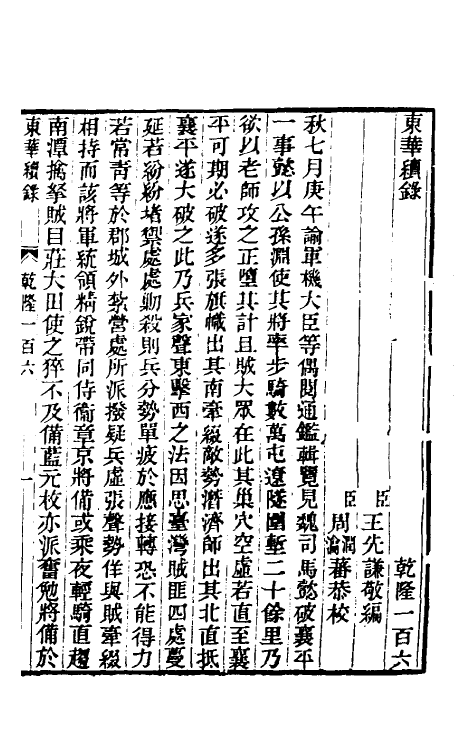 東華續錄
乾隆一百六
臣王先謙敬編
臣周潤蕃 周瀹蕃恭校
秋七月庚午諭軍機大臣等偶閱通鑑輯覽見魏司馬懿破襄平
一事懿以公孫淵使其將率步騎數萬屯遼隧圍塹二十餘里乃
欲以老師攻之正墮其計且賊大眾在此其巢穴空虛若直至襄
平可期必破遂多張旗幟出其南牽綴敵勢潛濟師出其北直抵
襄平遂大破之此乃兵家聲東擊西之法因思臺灣賊匪四處蔓
延若紛紛堵禦處處勦殺則兵分勢單疲於應接轉恐不能得力
若常青等於郡城外紮營處所派撥疑兵虛張聲勢佯與賊牽綴
相持而該將軍統領精銳帶同侍衞章京將備或乘夜輕騎直趨
南潭擒拏賊目莊大田使之猝不及備藍元枚亦派奮勉將備於
東華續錄 乾隆一百六 一